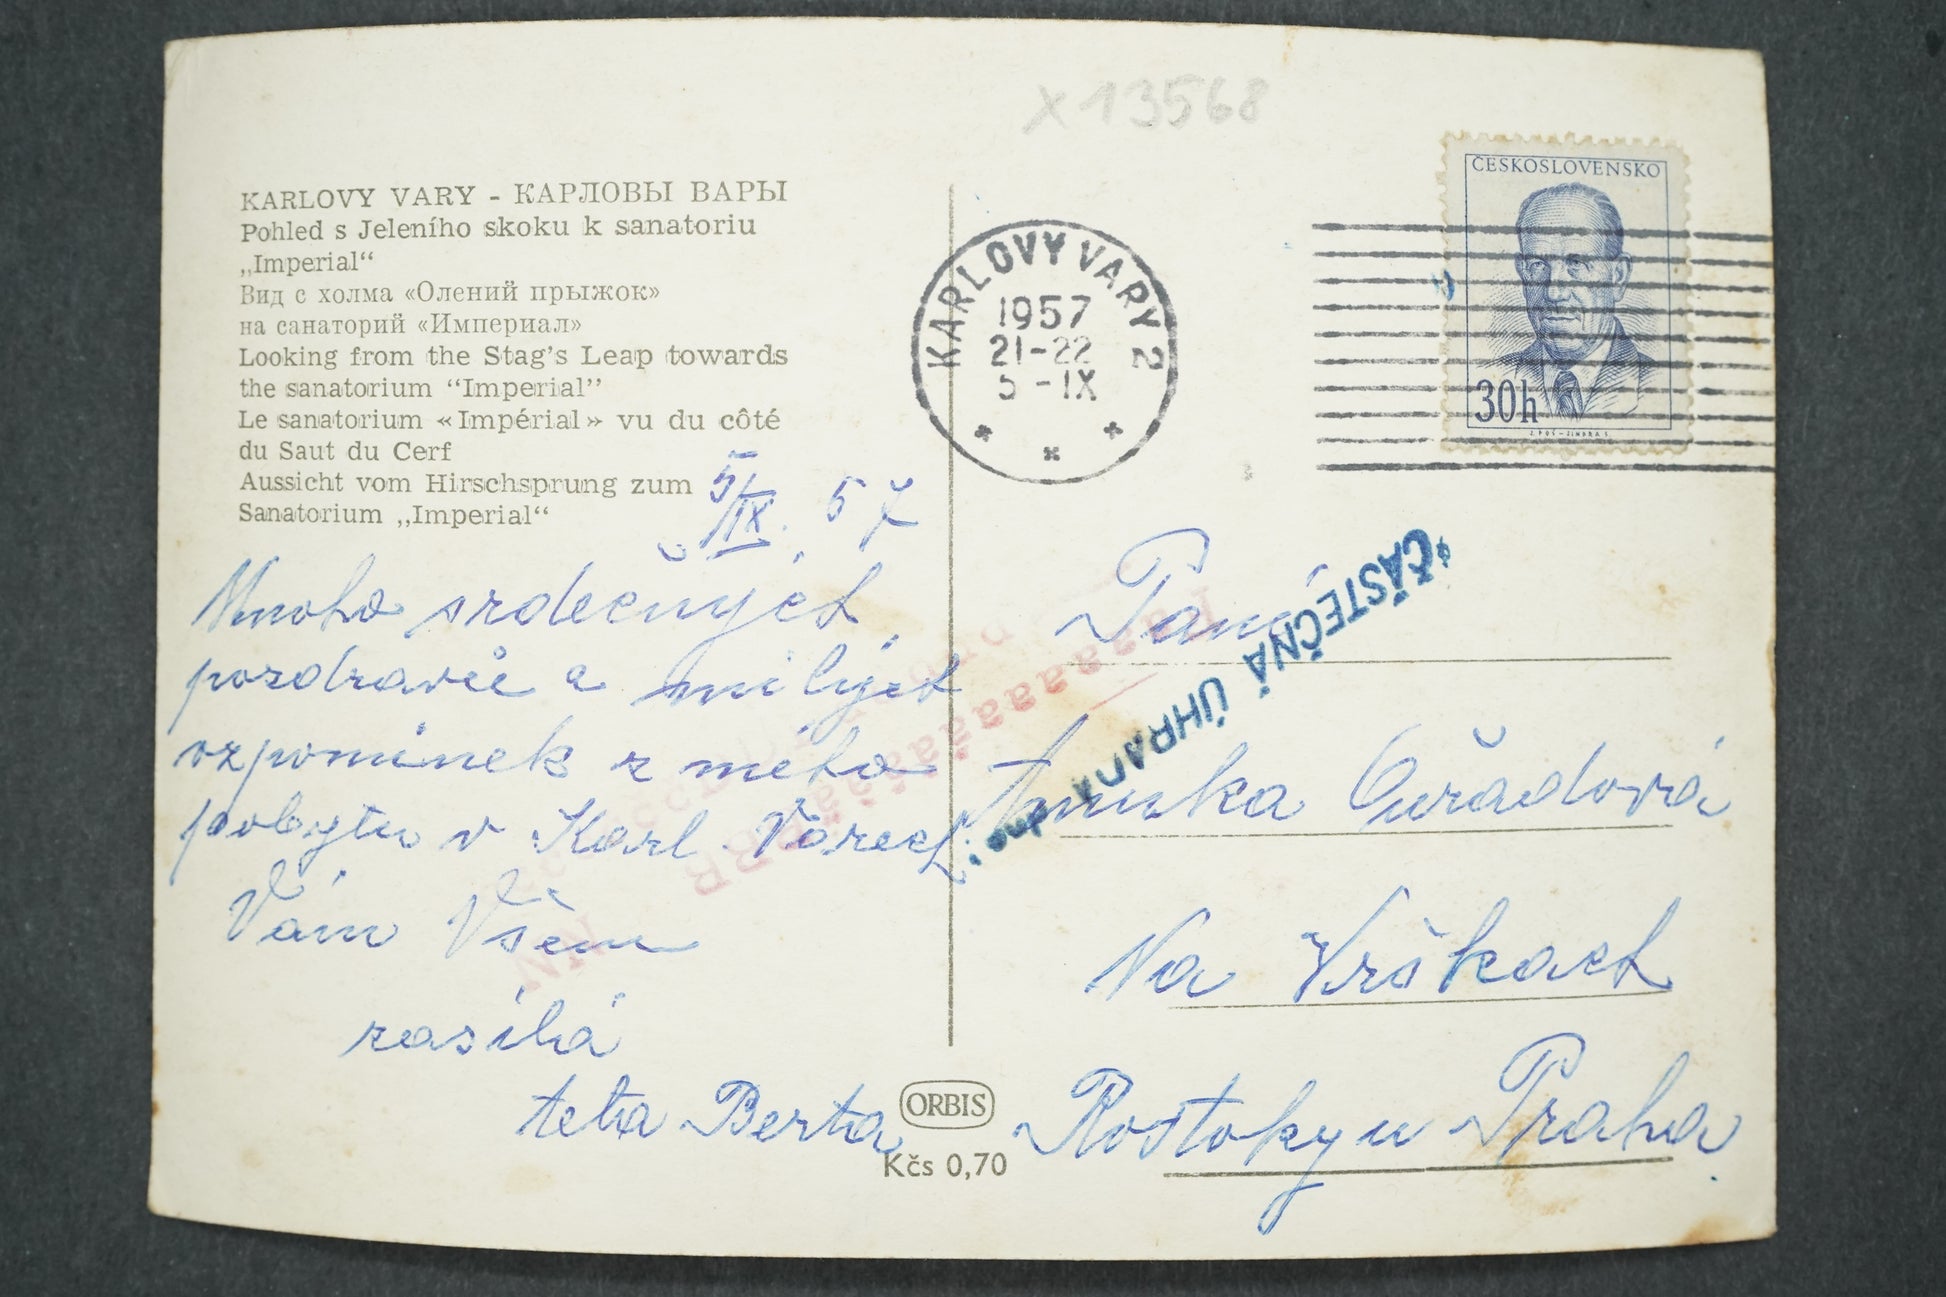 X 13568
KARLOVY VARY - КАРЛОВЫ ВАРЫ
Pohled s Jeleního skoku k sanatoriu
„Imperial“
Вид с холма «Олений прыжок»
на санаторий «Империал»
Looking from the Stag's Leap towards
the sanatorium “Imperial”
Le sanatorium «Impérial» vu du côté
du Saut du Cerf
Aussicht vom Hirschsprung zum
Sanatorium „Imperial“
5/IX. 57
Mnoho srdečných
pozdravů a milých
vzpomínek z mého
pobytu v Karl. Varech
Vám Všem
zasílá
teta Berta
ORBIS
Kčs 0,70
KARLOVY VARY 2
1957
21-22
5-IX
ČESKOSLOVENSKO
30h
ČÁSTEČNÁ ÚHRADA
Paní
Na Vrškach
Roztoky u Praha